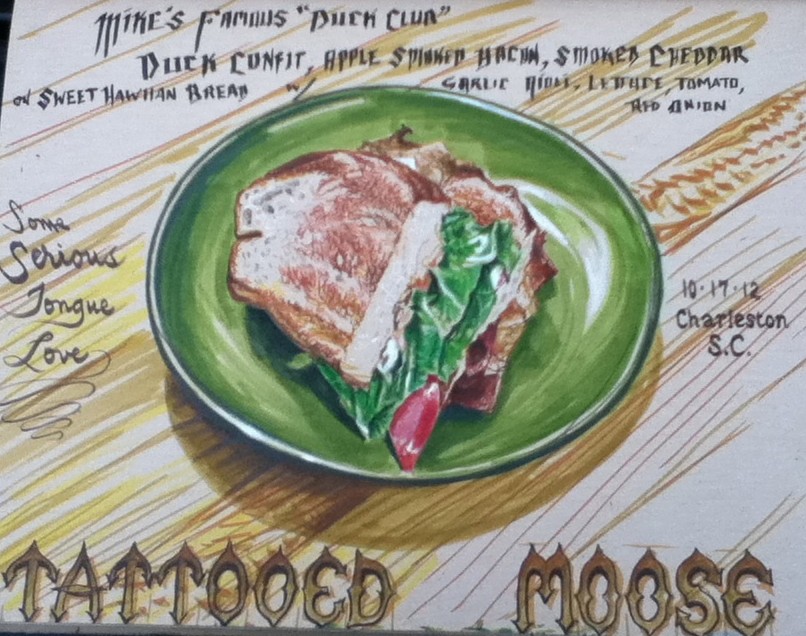 Mike's Famous "Duck Club"
Duck Confit, Apple Smoked Bacon, Smoked Cheddar
on Sweet Hawiian Bread w/ Garlic Aioli, Lettuce, Tomato,
Red Onion
Some
Serious
Tongue
Love
10·17·12
Charleston
S.C.
TATTOOED MOOSE